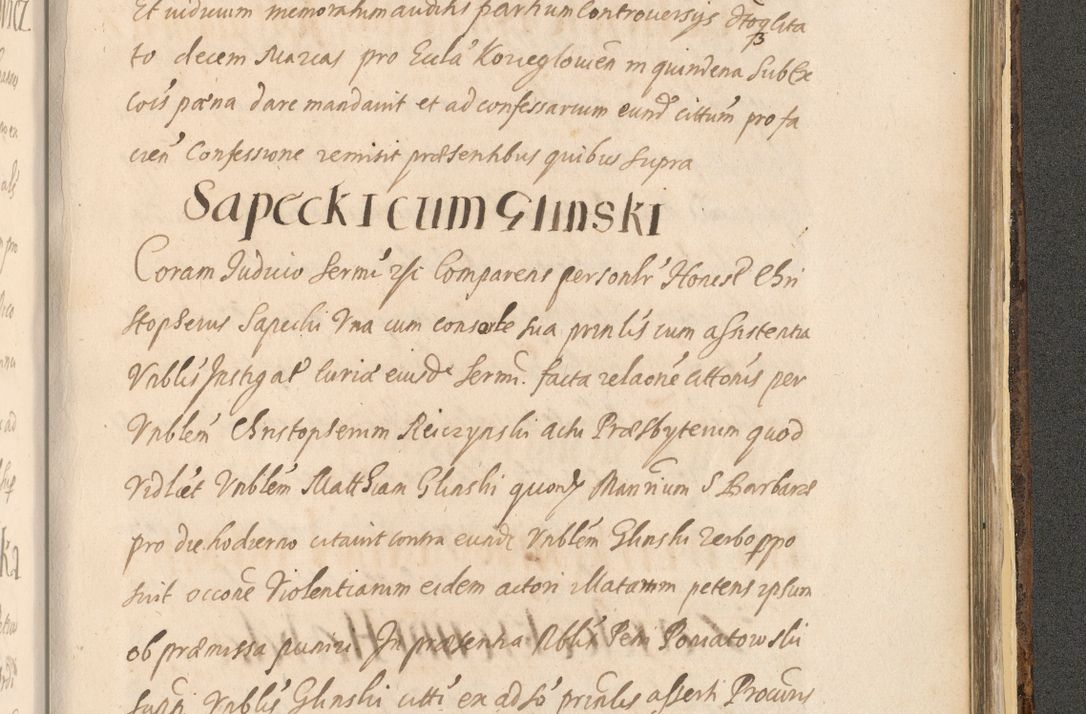 Et viduum memoratum auditis partium Controversijs dto glita
to decem Marcas pro Eccla Korieglowien in quindena sub Ex
cois pœna dare mandavit et ad confessarium eund cittum pro fa
cien Confessione remisit præsentibus quibus supra
Sapecki cum Glinski
Coram Iudicio Sermi rsc Comparens personlr Honest Chri
stopherus Sapecki Vna cum consorte sua prinlis cum assistentia
Vnblis Instigat Curiæ eiusde Sermi. facta relaone citt'onis per
Vnblem Christopherum Reiczynski actu Præsbyterum quod
Vidlicet Vnblem Matthiam Glinski quond Mannium S Barbaræ
pro die hodierno citavit contra eunde Vnblem Glinski verbo ppo
suit occone Violentiarum eidem actori illatarum petens ipsum
ob præmissa puniri In præsentia Nblis Petri Poniatowski
Vnblis Glinski citti ex adso prinlis asserti Procuris